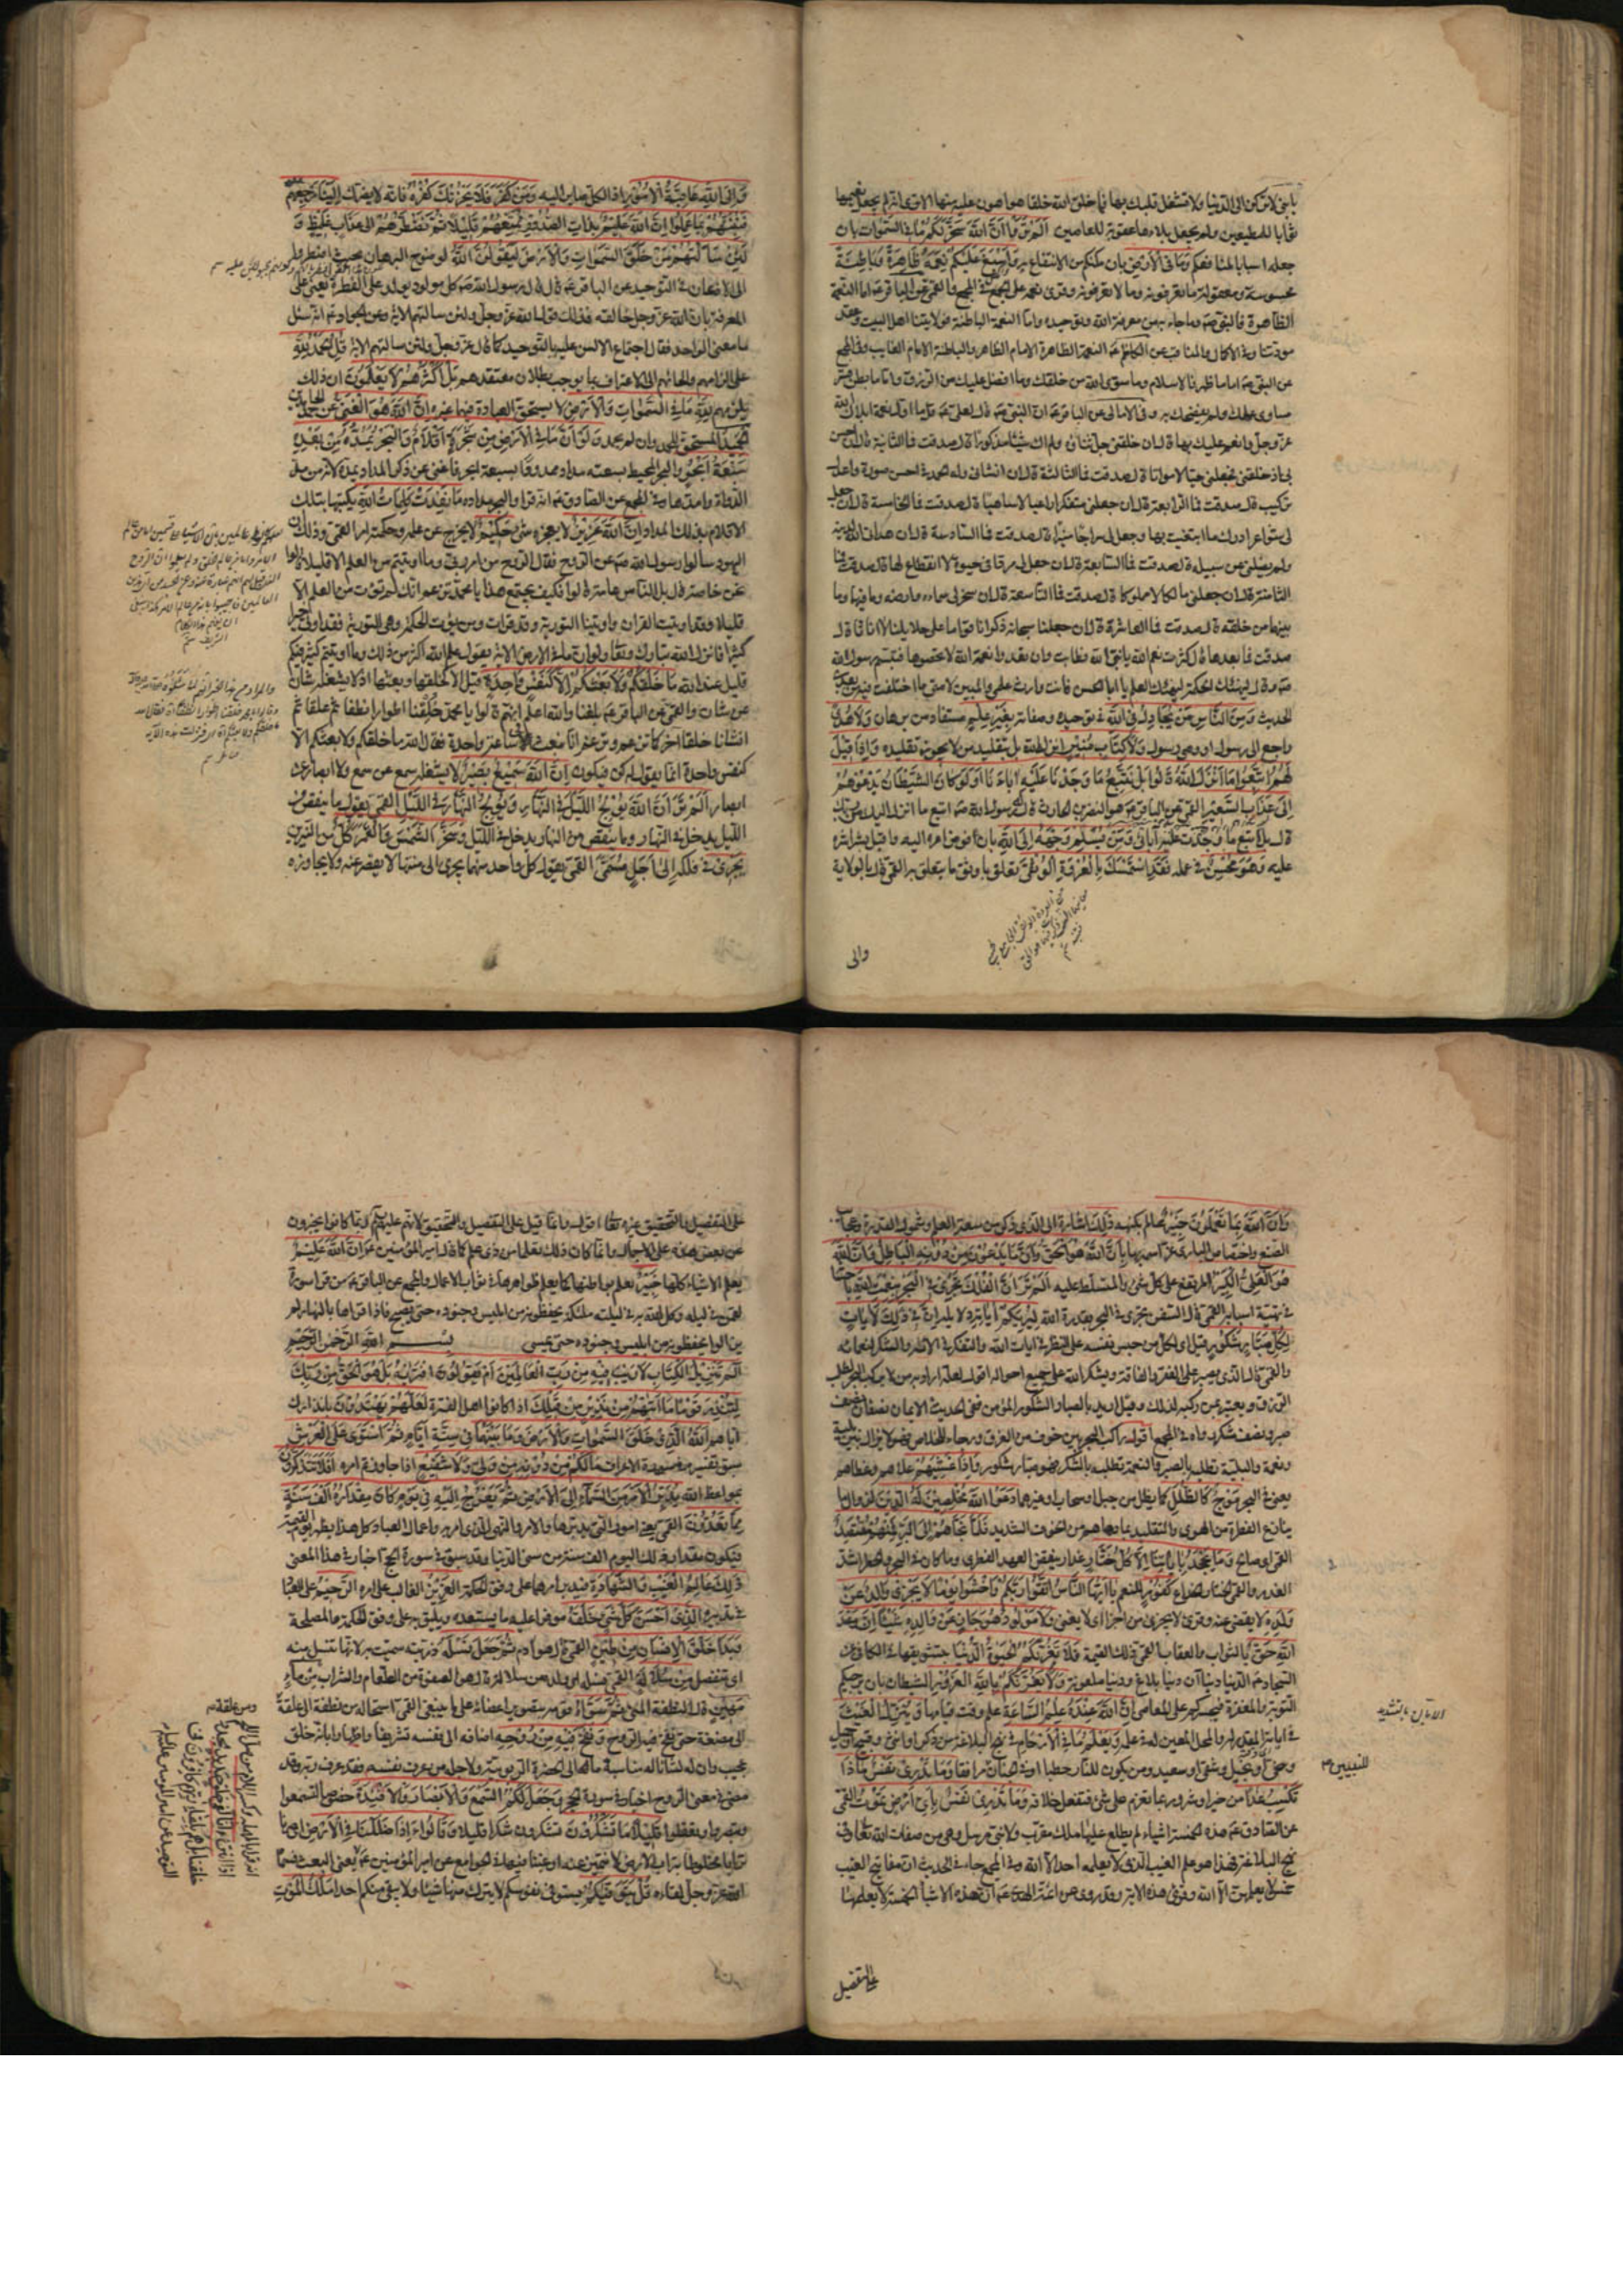 يا بني لا تركن الى الدنيا ولا تشغل قلبك بها فما خلق الله خلقا هو اهون عليه منها الا ترى انه لم يجعل نعيمها
ثوابا للمطيعين ولم يجعل بلاءها عقوبة للعاصين اَلَمْ تَرَوْا اَنَّ اللّهَ سَخَّرَ لَكُمْ مَا فِي السَّمٰوَاتِ بان
جعله اسبابا لمنافعكم وَمَا فِي الْاَرْضِ بان مكنكم من الانتفاع به وَاَسْبَغَ عَلَيْكُمْ نِعَمَهُ ظَاهِرَةً وَبَاطِنَةً
محسوسة ومعقولة ما تعرفونه وما لا تعرفونه وقرئ نعمه على الجمع في المجمع والقمي عن الباقر ع اما النعمة
الظاهرة فالنبي ص وما جاء به من معرفة الله وتوحيده واما النعمة الباطنة فولايتنا اهل البيت وعقد
مودتنا وفي الاكمال والمناقب عن الكاظم ع النعمة الظاهرة الامام الظاهر والباطنة الامام الغايب وفي المجمع
عن النبي ص اما ما ظهر فالاسلام وما سوى الله من خلقك وما افضل عليك من الرزق واما ما بطن فستر
مساوى عملك ولم يفضحك به وفي الامالي عن الباقر ع ان النبي ص قال لعلي ع قل ما اول نعمة ابلاك الله
عز وجل وانعم عليك بها قال ان خلقني جل ثناؤه ولم اك شيئا مذكورا قال صدقت فما الثانية قال ان احسن
بي اذ خلقني فجعلني حيا لا مواتا قال صدقت فما الثالثة قال ان انشاني وله الحمد في احسن صورة واعدل
تركيب قال صدقت فما الرابعة قال ان جعلني متفكرا راعيا لا ساهيا قال صدقت فما الخامسة قال ان جعل
لي شواعر ادرك ما ابتغيت بها وجعل لي سراجا منيرا قال صدقت فما السادسة قال ان هداني الله لدينه
ولم يضلني عن سبيله قال صدقت فما السابعة قال ان جعل لي مردا في حيوة لا انقطاع لها قال صدقت فما
الثامنة قال ان جعلني مالكا لا مملوكا قال صدقت فما التاسعة قال ان سخر لي سماءه وارضه وما فيهما وما
بينهما من خلقه قال صدقت فما العاشرة قال ان جعلنا سبحانه ذكرانا قواما على حلايلنا لا اناثا قال
صدقت فما بعد هذا قال كثرت نعم الله يا نبي الله فطابت وان تعدوا نعمة الله لا تحصوها فتبسم رسول الله
ص وقال ليهنئك الحكمة ليهنئك العلم يا ابا الحسن فانت وارث علمي والمبين لامتي ما اختلفت فيه من بعدي
الحديث وَمِنَ النَّاسِ مَنْ يُجَادِلُ فِي اللّهِ في توحيده وصفاته بِغَيْرِ عِلْمٍ مستفاد من برهان وَلَا هُدًى
راجع الى رسول او وصي رسول وَلَا كِتَابٍ مُنِيرٍ انزله الله بل بتقليد من لا يجوز تقليده وَاِذَا قِيلَ
لَهُمُ اتَّبِعُوا مَا اَنْزَلَ اللّهُ قَالُوا بَلْ نَتَّبِعُ مَا وَجَدْنَا عَلَيْهِ آبَاءَنَا اَوَلَوْ كَانَ الشَّيْطَانُ يَدْعُوهُمْ
اِلَى عَذَابِ السَّعِيرِ القمي عن الباقر ع هو النضر بن الحارث قال له رسول الله ص اتبع ما انزل اليك من ربك
قال بل اتبع ما وجدت عليه آبائي وَمَنْ يُسْلِمْ وَجْهَهُ اِلَى اللّهِ بان فوض امره اليه واقبل بشراشره
عليه وَهُوَ مُحْسِنٌ في عمله فَقَدِ اسْتَمْسَكَ بِالْعُرْوَةِ الْوُثْقَى تعلق باوثق ما يتعلق به القمي قال بالولاية
والى
وَاِلَى اللّهِ عَاقِبَةُ الْاُمُورِ اذ الكل صاير اليه وَمَنْ كَفَرَ فَلَا يَحْزُنْكَ كُفْرُهُ فانه لا يضرك اِلَيْنَا مَرْجِعُهُمْ
فَنُنَبِّئُهُمْ بِمَا عَمِلُوا اِنَّ اللّهَ عَلِيمٌ بِذَاتِ الصُّدُورِ نُمَتِّعُهُمْ قَلِيلًا ثُمَّ نَضْطَرُّهُمْ اِلَى عَذَابٍ غَلِيظٍ وَ
لَئِنْ سَاَلْتَهُمْ مَنْ خَلَقَ السَّمٰوَاتِ وَالْاَرْضَ لَيَقُولُنَّ اللّهُ لوضوح البرهان بحيث اضطروا
الى الاذعان في التوحيد عن الباقر ع قال قال رسول الله ص كل مولود يولد على الفطرة يعني على
المعرفة بان الله عز وجل خالقه فذلك قوله عز وجل ولئن سالتهم الاية وعن الجواد ع انه سئل
ما معنى الواحد فقال اجتماع الالسن عليه بالتوحيد كما قال عز وجل ولئن سالتهم الاية قُلِ الْحَمْدُ لِلّهِ
على الزامهم والجائهم الى الاعتراف بما يوجب بطلان معتقدهم بَلْ اَكْثَرُهُمْ لَا يَعْلَمُونَ ان ذلك
يلزمهم لِلّهِ مَا فِي السَّمٰوَاتِ وَالْاَرْضِ لا يستحق العبادة فيهما غيره اِنَّ اللّهَ هُوَ الْغَنِيُّ عن حمد الحامدين
الْحَمِيدُ المستحق للحمد وان لم يحمد وَلَوْ اَنَّ مَا فِي الْاَرْضِ مِنْ شَجَرَةٍ اَقْلَامٌ وَالْبَحْرُ يَمُدُّهُ مِنْ بَعْدِهِ
سَبْعَةُ اَبْحُرٍ والبحر المحيط بسعته مدادا ممدودا بسبعة ابحر فاغنى عن ذكر المداد يمده لانه من مد
الدواة وامدها وفي المجمع عن الصادق ع انه قرا والبحر مداده مَا نَفِدَتْ كَلِمَاتُ اللّهِ بكتبها بتلك
الاقلام بذلك المداد اِنَّ اللّهَ عَزِيزٌ لا يعجزه شئ حَكِيمٌ لا يخرج عن علمه وحكمته امر القمي وذلك ان
اليهود سالوا رسول الله ص عن الروح فقال الروح من امر ربي وما اوتيتم من العلم الا قليلا قالوا
نحن خاصة قال بل الناس عامة قالوا فكيف يجتمع هذا يا محمد تزعم انك لم تؤت من العلم الا
قليلا وقد اوتيت القران واوتينا التورية وقد قرات ومن يؤت الحكمة وهي التورية فقد اوتي خيرا
كثيرا فانزل الله تبارك وتعالى ولو ان ما في الارض الاية يقول علم الله اكثر من ذلك وما اوتيتم كثير فيكم
قليل عند الله مَا خَلْقُكُمْ وَلَا بَعْثُكُمْ اِلَّا كَنَفْسٍ وَاحِدَةٍ قيل الا كخلقها وبعثها اذ لا يشغله شان
عن شان والقمي عن الباقر ع بلغنا والله اعلم انهم قالوا يا محمد خلقنا اطوارا نطفا ثم علقا ثم
انشانا خلقا اخر كما تزعم وتزعم انا نبعث في ساعة واحدة فقال الله ما خلقكم ولا بعثكم الا
كنفس واحدة انما يقول له كن فيكون اِنَّ اللّهَ سَمِيعٌ بَصِيرٌ لا يشغله سمع عن سمع ولا ابصار عن
ابصار اَلَمْ تَرَ اَنَّ اللّهَ يُولِجُ اللَّيْلَ فِي النَّهَارِ وَيُولِجُ النَّهَارَ فِي اللَّيْلِ القمي يقول ما ينقص من
الليل يدخل في النهار وما ينقص من النهار يدخل في الليل وَسَخَّرَ الشَّمْسَ وَالْقَمَرَ كُلٌّ من النيرين
يَجْرِي في فلكه اِلَى اَجَلٍ مُسَمًّى القمي يقول كل واحد منهما يجري الى منتهاه لا يقصر عنه ولا يجاوزه
وَاَنَّ اللّهَ بِمَا تَعْمَلُونَ خَبِيرٌ عالم بكنهه ذٰلِكَ اشارة الى الذي ذكر من سعة العلم وشمول القدرة وعجائب
الصنع واختصاص البارى عز اسمه بها بِاَنَّ اللّهَ هُوَ الْحَقُّ وَاَنَّ مَا يَدْعُونَ مِنْ دُونِهِ الْبَاطِلُ وَاَنَّ اللّهَ
هُوَ الْعَلِيُّ الْكَبِيرُ المرتفع على كل شئ والمتسلط عليه اَلَمْ تَرَ اَنَّ الْفُلْكَ تَجْرِي فِي الْبَحْرِ بِنِعْمَتِ اللّهِ باحسانه
في تهيئة اسبابه القمي قال السفن تجرى في البحر بقدرة الله لِيُرِيَكُمْ مِنْ آيَاتِهِ دلايله اِنَّ فِي ذٰلِكَ لَآيَاتٍ
لِكُلِّ صَبَّارٍ شَكُورٍ قيل اى لكل من حبس نفسه على النظر في ايات الله والتفكر في الائه والشكر لنعمائه
والقمي قال الذي يصبر على الفقر والفاقة ويشكر الله على جميع احواله اقول لعله اراد به من لا يركب البحر لطلب
الرزق ويعتبر بمن ركبه لذلك وقيل اريد بالصبار الشكور المؤمن ففي الحديث الايمان نصفان نصف
صبر ونصف شكر رواه في المجمع اقول راكب البحر بين خوف من الغرق ورجاء للخلاص فهو لا يزال بين بلية
ونعمة والبلية تطلبه بالصبر والنعمة تطلبه بالشكر فهو صبار شكور وَاِذَا غَشِيَهُمْ علاهم وغطاهم
يعني في البحر مَوْجٌ كَالظُّلَلِ كما يظل من جبل او سحاب او غيرهما دَعَوُا اللّهَ مُخْلِصِينَ لَهُ الدِّينَ لزوال ما
ينازع الفطرة من الهوى والتقليد بما دهاهم من الخوف الشديد فَلَمَّا نَجّٰيهُمْ اِلَى الْبَرِّ فَمِنْهُمْ مُقْتَصِدٌ
القمي اى صالح وَمَا يَجْحَدُ بِآيَاتِنَا اِلَّا كُلُّ خَتَّارٍ غدار ينقض العهد الفطرى وما كان في البحر والختر اشد
الغدر والقمي الختار الخداع كَفُورٍ للنعم يَا اَيُّهَا النَّاسُ اتَّقُوا رَبَّكُمْ وَاخْشَوْا يَوْمًا لَا يَجْزِي وَالِدٌ عَنْ
وَلَدِهِ لا يقضي عنه وقرئ لا يجزئ من اجزا اى لا يغني وَلَا مَوْلُودٌ هُوَ جَازٍ عَنْ وَالِدِهِ شَيْئًا اِنَّ وَعْدَ
اللّهِ حَقٌّ بالثواب والعقاب القمي ذلك القيمة فَلَا تَغُرَّنَّكُمُ الْحَيٰوةُ الدُّنْيَا
السجاد ع الدنيا دنياآن دنيا بلاغ ودنيا ملعونة وَلَا يَغُرَّنَّكُمْ بِاللّهِ الْغَرُورُ الشيطان بان يرجيكم
التوبة والمغفرة فيجسركم على المعاصي اِنَّ اللّهَ عِنْدَهُ عِلْمُ السَّاعَةِ علم وقت قيامها وَيُنَزِّلُ الْغَيْثَ
في ابانه المقدر له والمحل المعين له في علمه وَيَعْلَمُ مَا فِي الْاَرْحَامِ في نهج البلاغة من ذكر او انثى وقبيح او جميل
وسخي او بخيل وشقي او سعيد ومن يكون للنار حطبا او في الجنان مرافقا وَمَا تَدْرِي نَفْسٌ مَاذَا
تَكْسِبُ غَدًا من خير او شر وربما تعزم على شئ فتفعل خلافه وَمَا تَدْرِي نَفْسٌ بِاَيِّ اَرْضٍ تَمُوتُ القمي
عن الصادق ع هذه الخمسة اشياء لم يطلع عليها ملك مقرب ولا نبي مرسل وهي من صفات الله تعالى وفي
نهج البلاغة فهذا هو علم الغيب الذي لا يعلمه احد الا الله وفي المجمع جاء في الحديث ان مفاتيح الغيب
خمس لا يعلمهن الا الله وقرئ هذه الاية وقد روى عن ائمة الهدى ع ان هذه الاشياء الخمسة لا يعلمها
للنبيين
على التفصيل
على التفصيل والتحقيق غيره تعالى اقول وانما قيل على التفصيل والتحقيق لانهم عليهم السلام ربما كانوا يخبرون
عن بعض هذه على الاجمال وانما كان ذلك تعلما من ذى علم كما قال امير المؤمنين ع اِنَّ اللّهَ عَلِيمٌ
يعلم الاشياء كلها خَبِيرٌ يعلم بواطنها كما يعلم ظواهرها في ثواب الاعمال والمجمع عن الباقر ع من قرا سورة
لقمن في ليله وكل الله به في ليلته ملئكة يحفظونه من ابليس وجنوده حتى يصبح فاذا قراها بالنهار لم
يزالوا يحفظونه من ابليس وجنوده حتى يمسي بِسْمِ اللّهِ الرَّحْمٰنِ الرَّحِيمِ
الٓمٓ تَنْزِيلُ الْكِتَابِ لَا رَيْبَ فِيهِ مِنْ رَبِّ الْعَالَمِينَ اَمْ يَقُولُونَ افْتَرٰيهُ بَلْ هُوَ الْحَقُّ مِنْ رَبِّكَ
لِتُنْذِرَ قَوْمًا مَا اَتٰيهُمْ مِنْ نَذِيرٍ مِنْ قَبْلِكَ اذ كانوا اهل الفترة لَعَلَّهُمْ يَهْتَدُونَ بانذارك
اياهم اَللّهُ الَّذِي خَلَقَ السَّمٰوَاتِ وَالْاَرْضَ وَمَا بَيْنَهُمَا فِي سِتَّةِ اَيَّامٍ ثُمَّ اسْتَوٰى عَلَى الْعَرْشِ
سبق تفسيره في سورة الاعراف مَا لَكُمْ مِنْ دُونِهِ مِنْ وَلِيٍّ وَلَا شَفِيعٍ اذا جاوزتم امره اَفَلَا تَتَذَكَّرُونَ
بمواعظ الله يُدَبِّرُ الْاَمْرَ مِنَ السَّمَاءِ اِلَى الْاَرْضِ ثُمَّ يَعْرُجُ اِلَيْهِ فِي يَوْمٍ كَانَ مِقْدَارُهُ اَلْفَ سَنَةٍ
مِمَّا تَعُدُّونَ القمي يعني امور التي يدبرها والامر والنهي الذي امر به واعمال العباد كل هذا يظهر يوم القيمة
فيكون مقدار ذلك اليوم الف سنة من سني الدنيا وقد سبق في سورة الحج اخبار في هذا المعنى
ذٰلِكَ عَالِمُ الْغَيْبِ وَالشَّهَادَةِ فيدبر امرها على وفق الحكمة الْعَزِيزُ الغالب على امره الرَّحِيمُ على العباد
في تدبيره الَّذِي اَحْسَنَ كُلَّ شَيْءٍ خَلَقَهُ موفرا عليه ما يستعده ويليق به على وفق الحكمة والمصلحة
وَبَدَاَ خَلْقَ الْاِنْسَانِ مِنْ طِينٍ القمي قال هو ادم ثُمَّ جَعَلَ نَسْلَهُ ذريته سميت به لانها تنسل منه
اى تنفصل مِنْ سُلَالَةٍ القمي نسله اى ولده من سلالة قال هو الصفوة من الطعام والشراب مِنْ مَاءٍ
مَهِينٍ قال النطفة المني ثُمَّ سَوّٰيهُ قومه بتصوير اعضائه على ما ينبغي القمي استحاله من نطفة الى علقة
الى مضغة حتى نفخ فيه الروح وَنَفَخَ فِيهِ مِنْ رُوحِهِ اضافه الى نفسه تشريفا واظهارا بانه خلق
عجيب وان له لشانا له مناسبة ما الى الحضرة الربوبية ولاجله من عرف نفسه فقد عرف ربه وقد
مضى في معنى الروح اخبار في سورة الحجر وَجَعَلَ لَكُمُ السَّمْعَ وَالْاَبْصَارَ وَالْاَفْئِدَةَ خصوصا لتسمعوا
وتبصروا وتعقلوا قَلِيلًا مَا تَشْكُرُونَ تشكرون شكرا قليلا وَقَالُوا ءَاِذَا ضَلَلْنَا فِي الْاَرْضِ اى صرنا
ترابا مخلوطا بتراب الارض لا نتميز عنه او غبنا فيها في الجوامع عن امير المؤمنين ع يعني البعث فسمى
الله عز وجل لقاءه قُلْ يَتَوَفّٰيكُمْ يستوفى نفوسكم لا يترك منها شيئا ولا يبقى منكم احدا مَلَكُ الْمَوْتِ